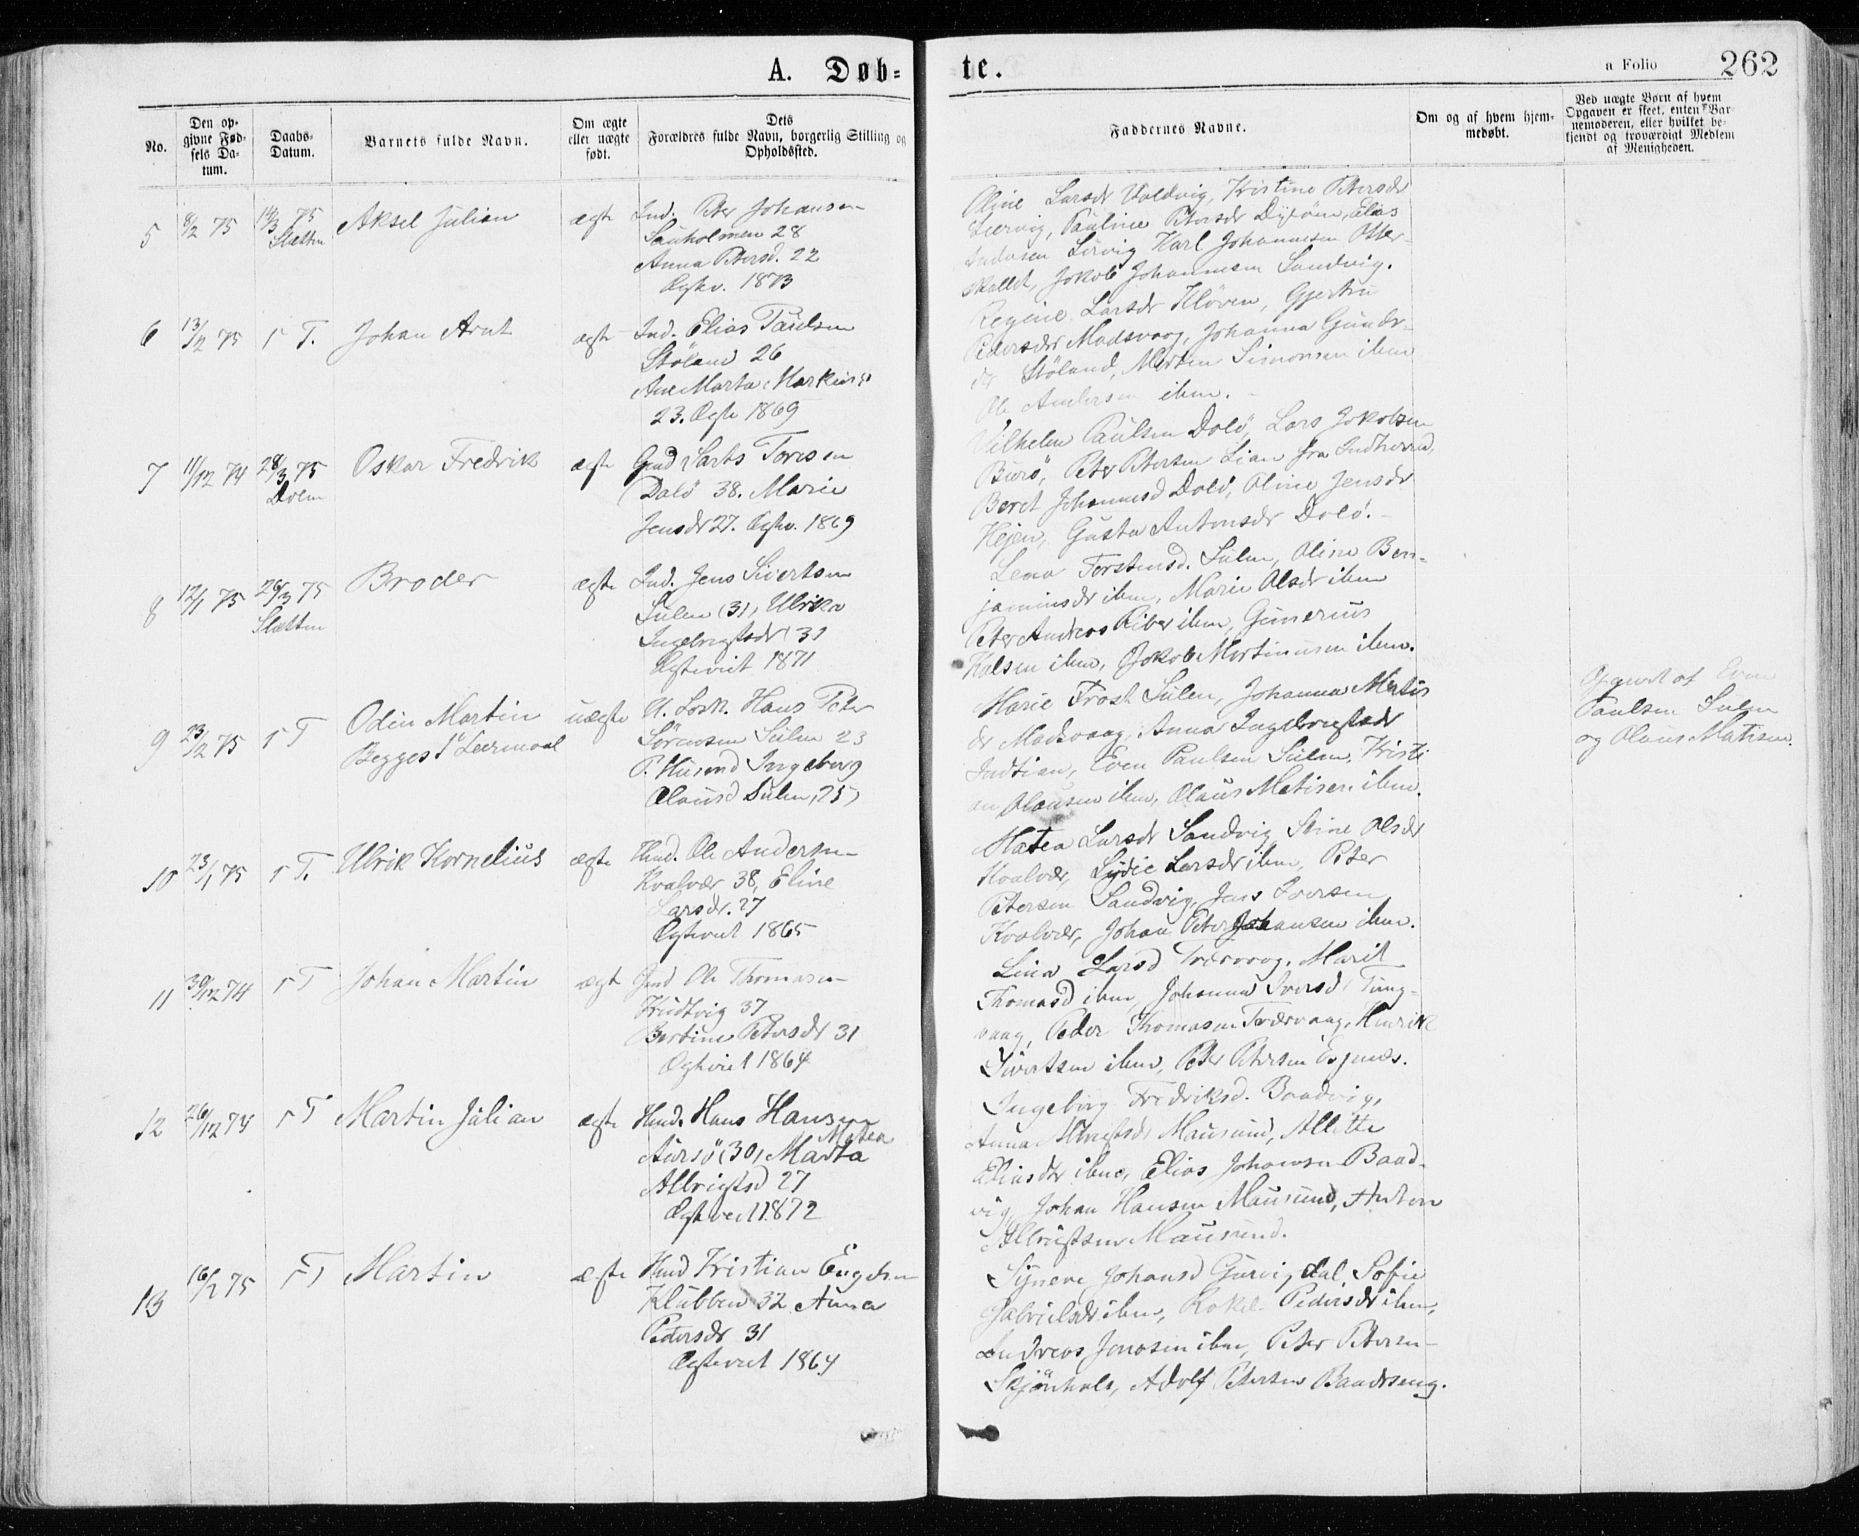 A. Døb=
te.
a Folio 262
No.
Den op-
givne Fød-
sels Da-
tum.
Daabs-
Datum.
Barnets fulde Navn.
Om ægte
eller uægte
født.
Dets
Forældres fulde Navn, borgerlig Stilling og
Opholdssted.
Faddernes Navne.
Om og af hvem hjem-
medøbt.
Ved uægte Børn af hvem
Opgaven er skeet, enten Bar-
nemoderen, eller hvilket be-
kjendt og troværdigt Medlem
af Menigheden.
5 8/2 75 14/3 75 Aksel Julian ægte Ind. Peter Johansen
Sletten Sauholmen 28
Anna Petersd. 22
Egtev. 1873
Oline Larsdr Valdvig, Kristine Petersdr
Pauline Petersdr Elias
Karl Johannesen Otter-
skallet, Jokob Johannesen Sandvig.
6 13/2 75 s T. Johan Arnt ægte Ind. Elias Paulsen
Støland 26
Ane Marta
23. Egte 1869
Regine Larsdr Kløven, Gjertru
Pedersdr Madsvaag, Johanna Gundr-
dr Støland, Morten Simonsen ibm
Ole Andersen ibm.
7 11/12 74 28/3 75 Oskar Fredrik ægte Gmd Torresen
Dolm Dolø 38. Marie
Jensdr 27. Egtev. 1869
Vilhelm Paulsen Dolø, Lars Jokobsen
Burø, Peter Petersen Lian fra
Beret Johannesd Dolø, Oline Jensdr
Hejen, Gusta Antonsdr Dolø.
8 12/1 75 26/3 75 Broder ægte Ind. Jens Sivertsen
Sletten Sulen (31) Ulrika
Ingebregtsdr (31
Egteviet 1871
Lena Torstensd. Sulen, Oline Ben-
jaminsdr ibm, Marie Olsdr ibm
Peter Andreas Riber ibm, Gunerius
ibm, Jokob Martinusen ibm.
9 23/2 75 s T Odin Martin uægte U. Losk. Hans Peter
Begges 1ste Leiermaal Sørensen Sulen 23
P. Husmd Ingeborg
Olausd Sulen, 25)
Marie Frost Sulen, Johanna
dr Madsvaag, Anna Ingebregtsdr
Indtian, Even Paulsen Sulen, Kristi
an Olausen ibm, Olaus Matisen ibm.
Opgivet af Even
Paulsen Sulen
og Olaus Matisen.
10 23/1 75 s T. Ulrik Kornelius ægte Hmd. Ole Andersen
Kvalvær 38, Eline
Larsdr. 27
Egteviet 1865
Matea Larsdr Sandvig Stine Olsdr
Kvalvær, Lydie Larsdr ibm, Peter
Petersen Sandvig, Jens Iversen
Kvalvær, Johan Peter Johansen ibm.
11 30/12 74 s T Johan Martin ægte Gmd Ole Thomasen
Krudtvig 37
Bertine Petersdr 31
Egteviet 1864
Lina Larsd Tværvaag, Marit
Thomasd ibm, Johanna Iversd Tung-
vaag, Peder Thomasen Tværvaag, Henrik
Sivertsen ibm, Peter Petersen
12 26/12 74 s T Martin Julian ægte Hmd. Hans Hansen
Matea
Aursø (30) Marta
Albrigtsd 27
Egteviet 1872
Ingeborg Fredriksd. Baadvig,
Anna Albrigtsdr Mausund, Allette
Eliasdr ibm, Elias Johansen Baad-
vig, Johan Hansen Mausund, Anton
Albrigtsen Mausund.
13 16/2 75 s T Martin ægte Hmd Kristian
Klubben 32 Anna
Pedersdr 31
Egteviet 1864
Syneve Johansd Gurvigdal, Sofie
Gabrielsdr ibm, Pedersdr ibm,
Andreas Jonasen ibm, Peter Petersen
Skjønhals, Adolf Petersen